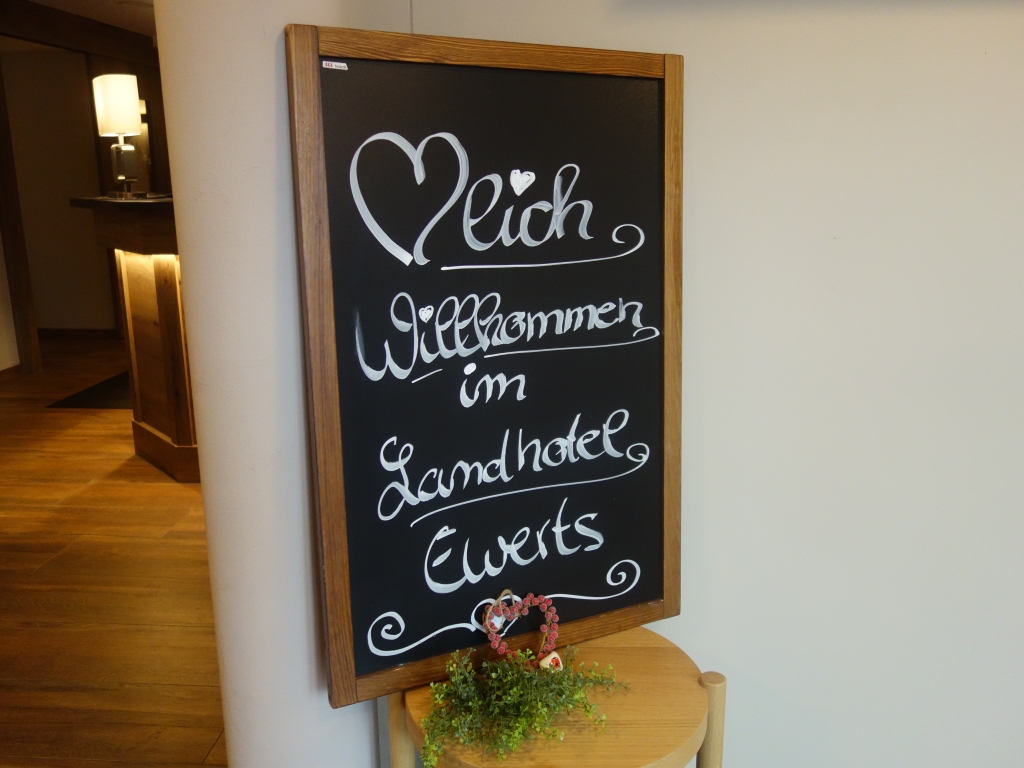 ♡lich
Willkommen
im
Landhotel
Ewerts